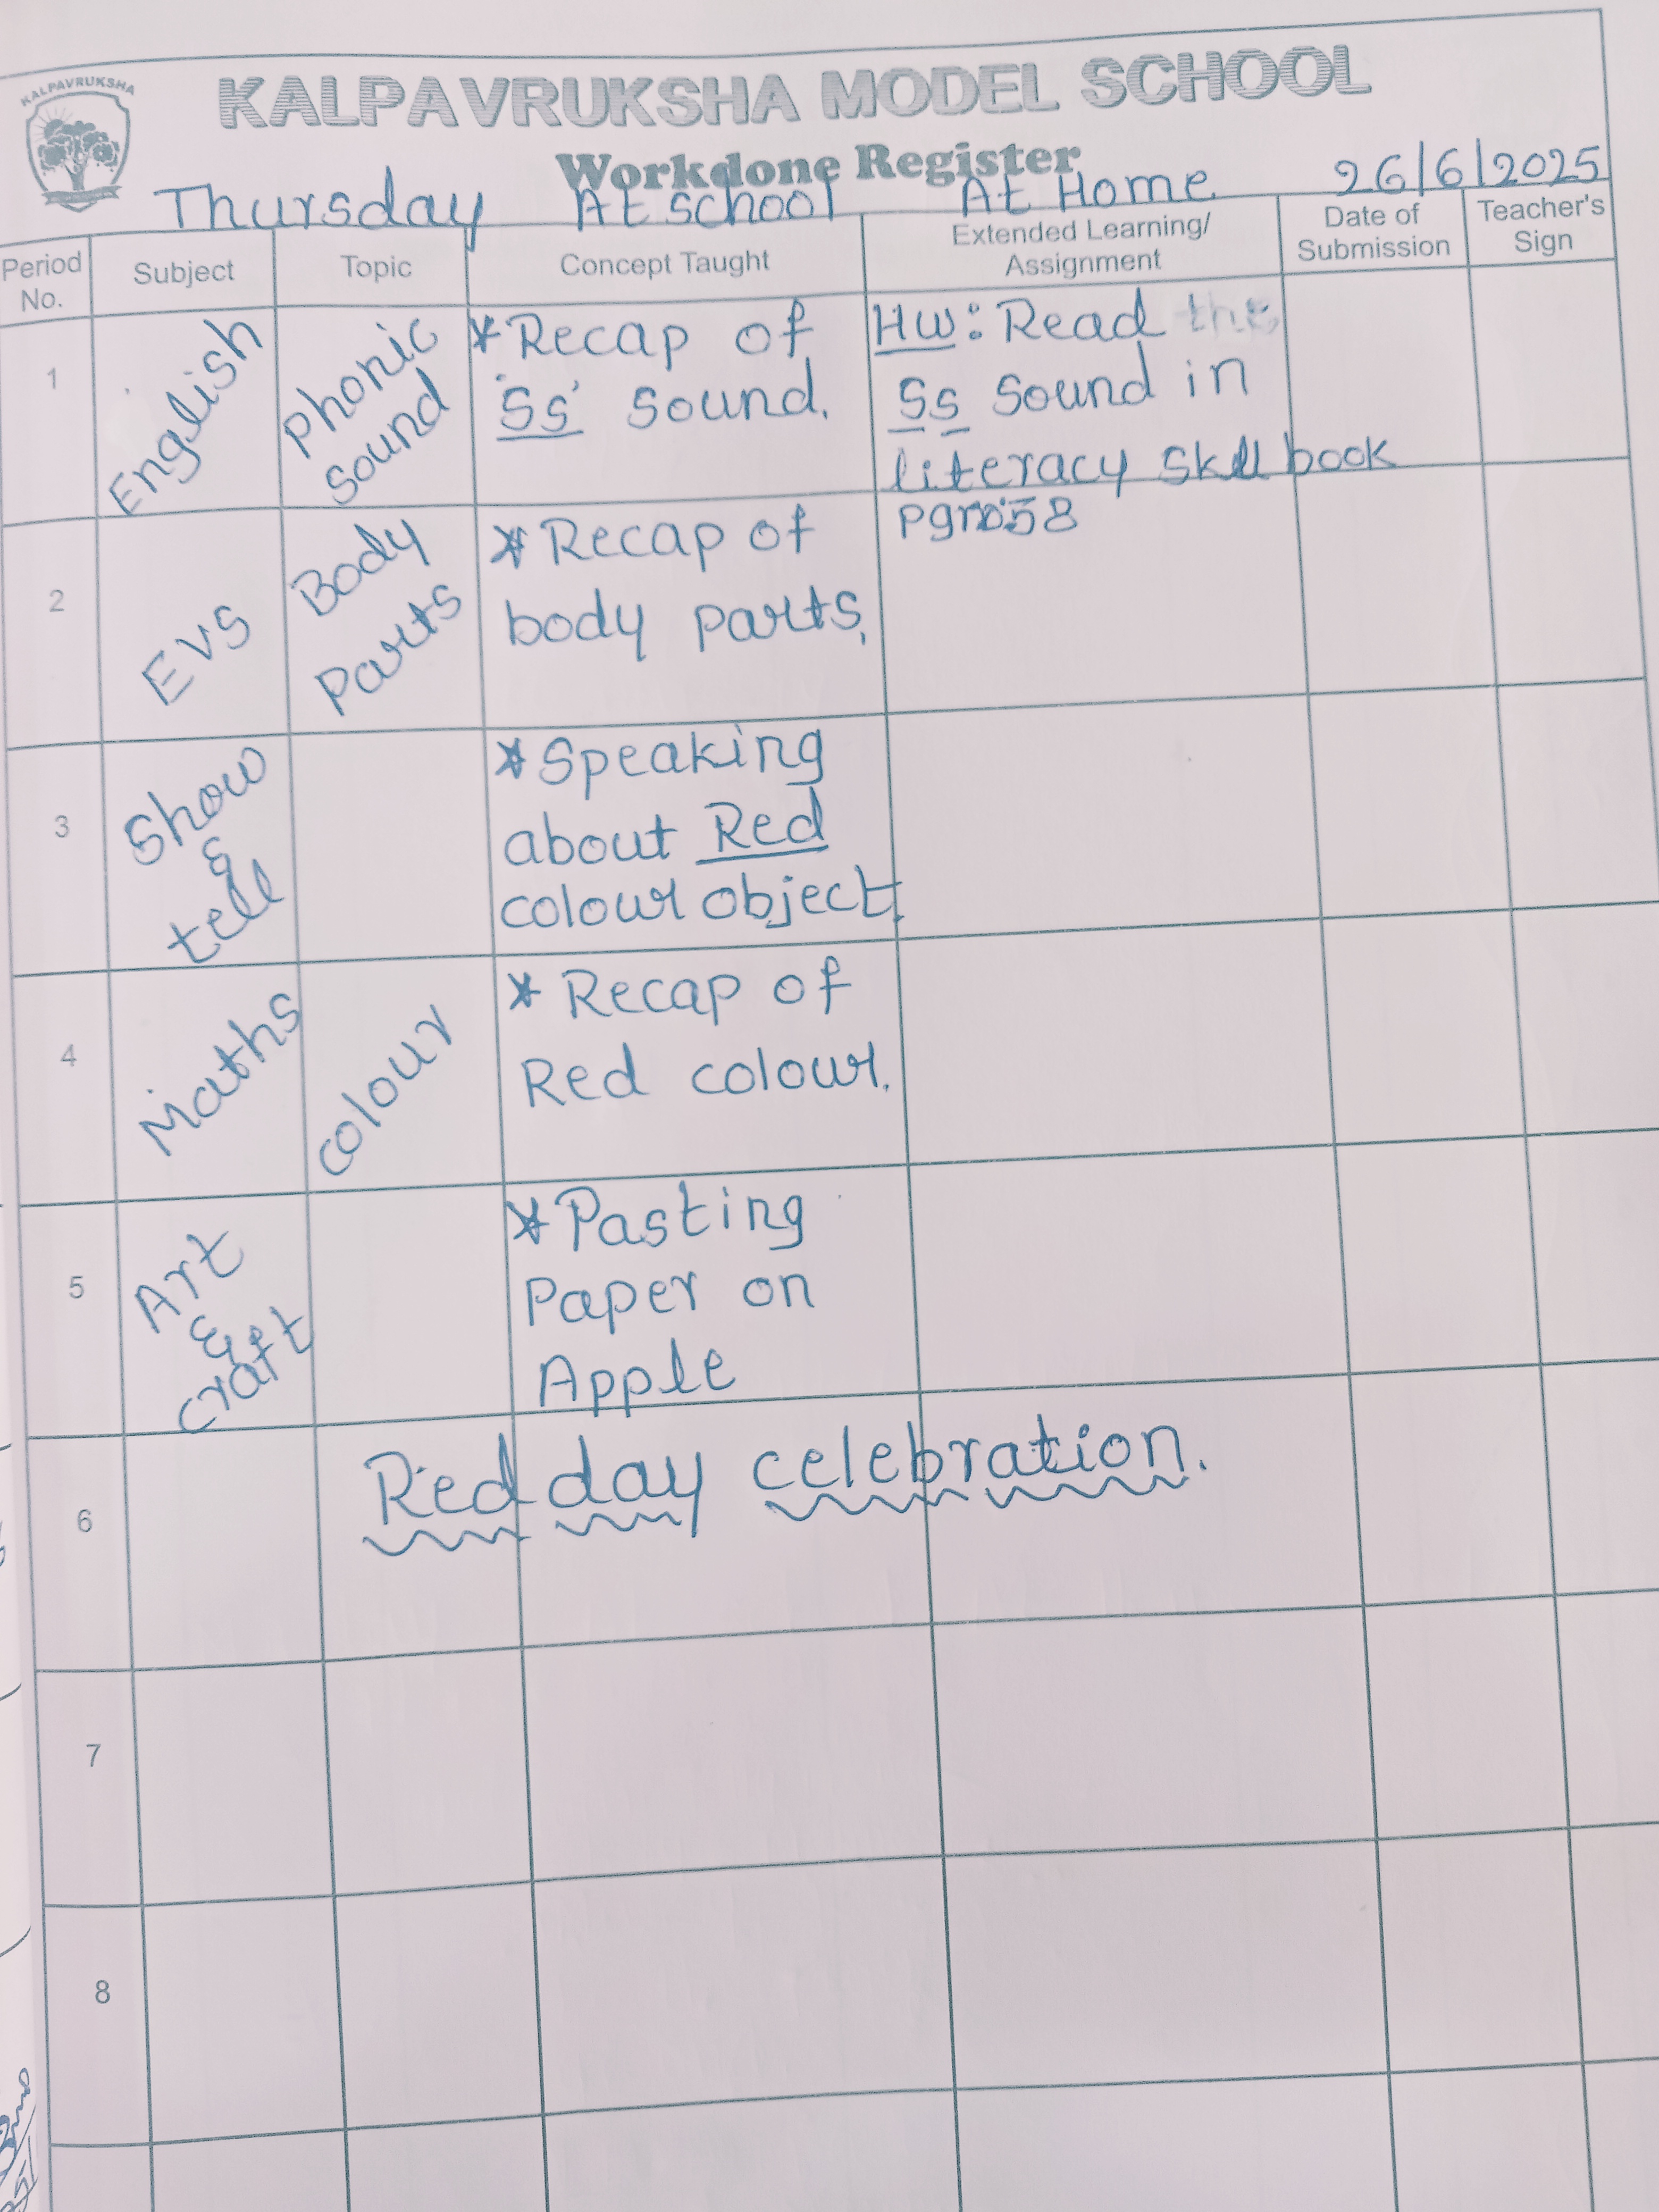 KALPAVRUKSHA
KALPAVRUKSHA MODEL SCHOOL
Workdone Register
Thursday At school At Home 26/6/2025
Period No. Subject Topic Concept Taught Extended Learning/ Assignment Date of Submission Teacher's Sign
1 English Phonic sound
*Recap of
'Ss' sound.
HW: Read the
Ss sound in
literacy skill book
pgno:58
2 EVS Body Parts
*Recap of
body parts.
3 Show & tell
*Speaking
about Red
colour object.
4 Maths colour
* Recap of
Red colour.
5 Art & craft
*Pasting
Paper on
Apple
6 Red day celebration.
7
8